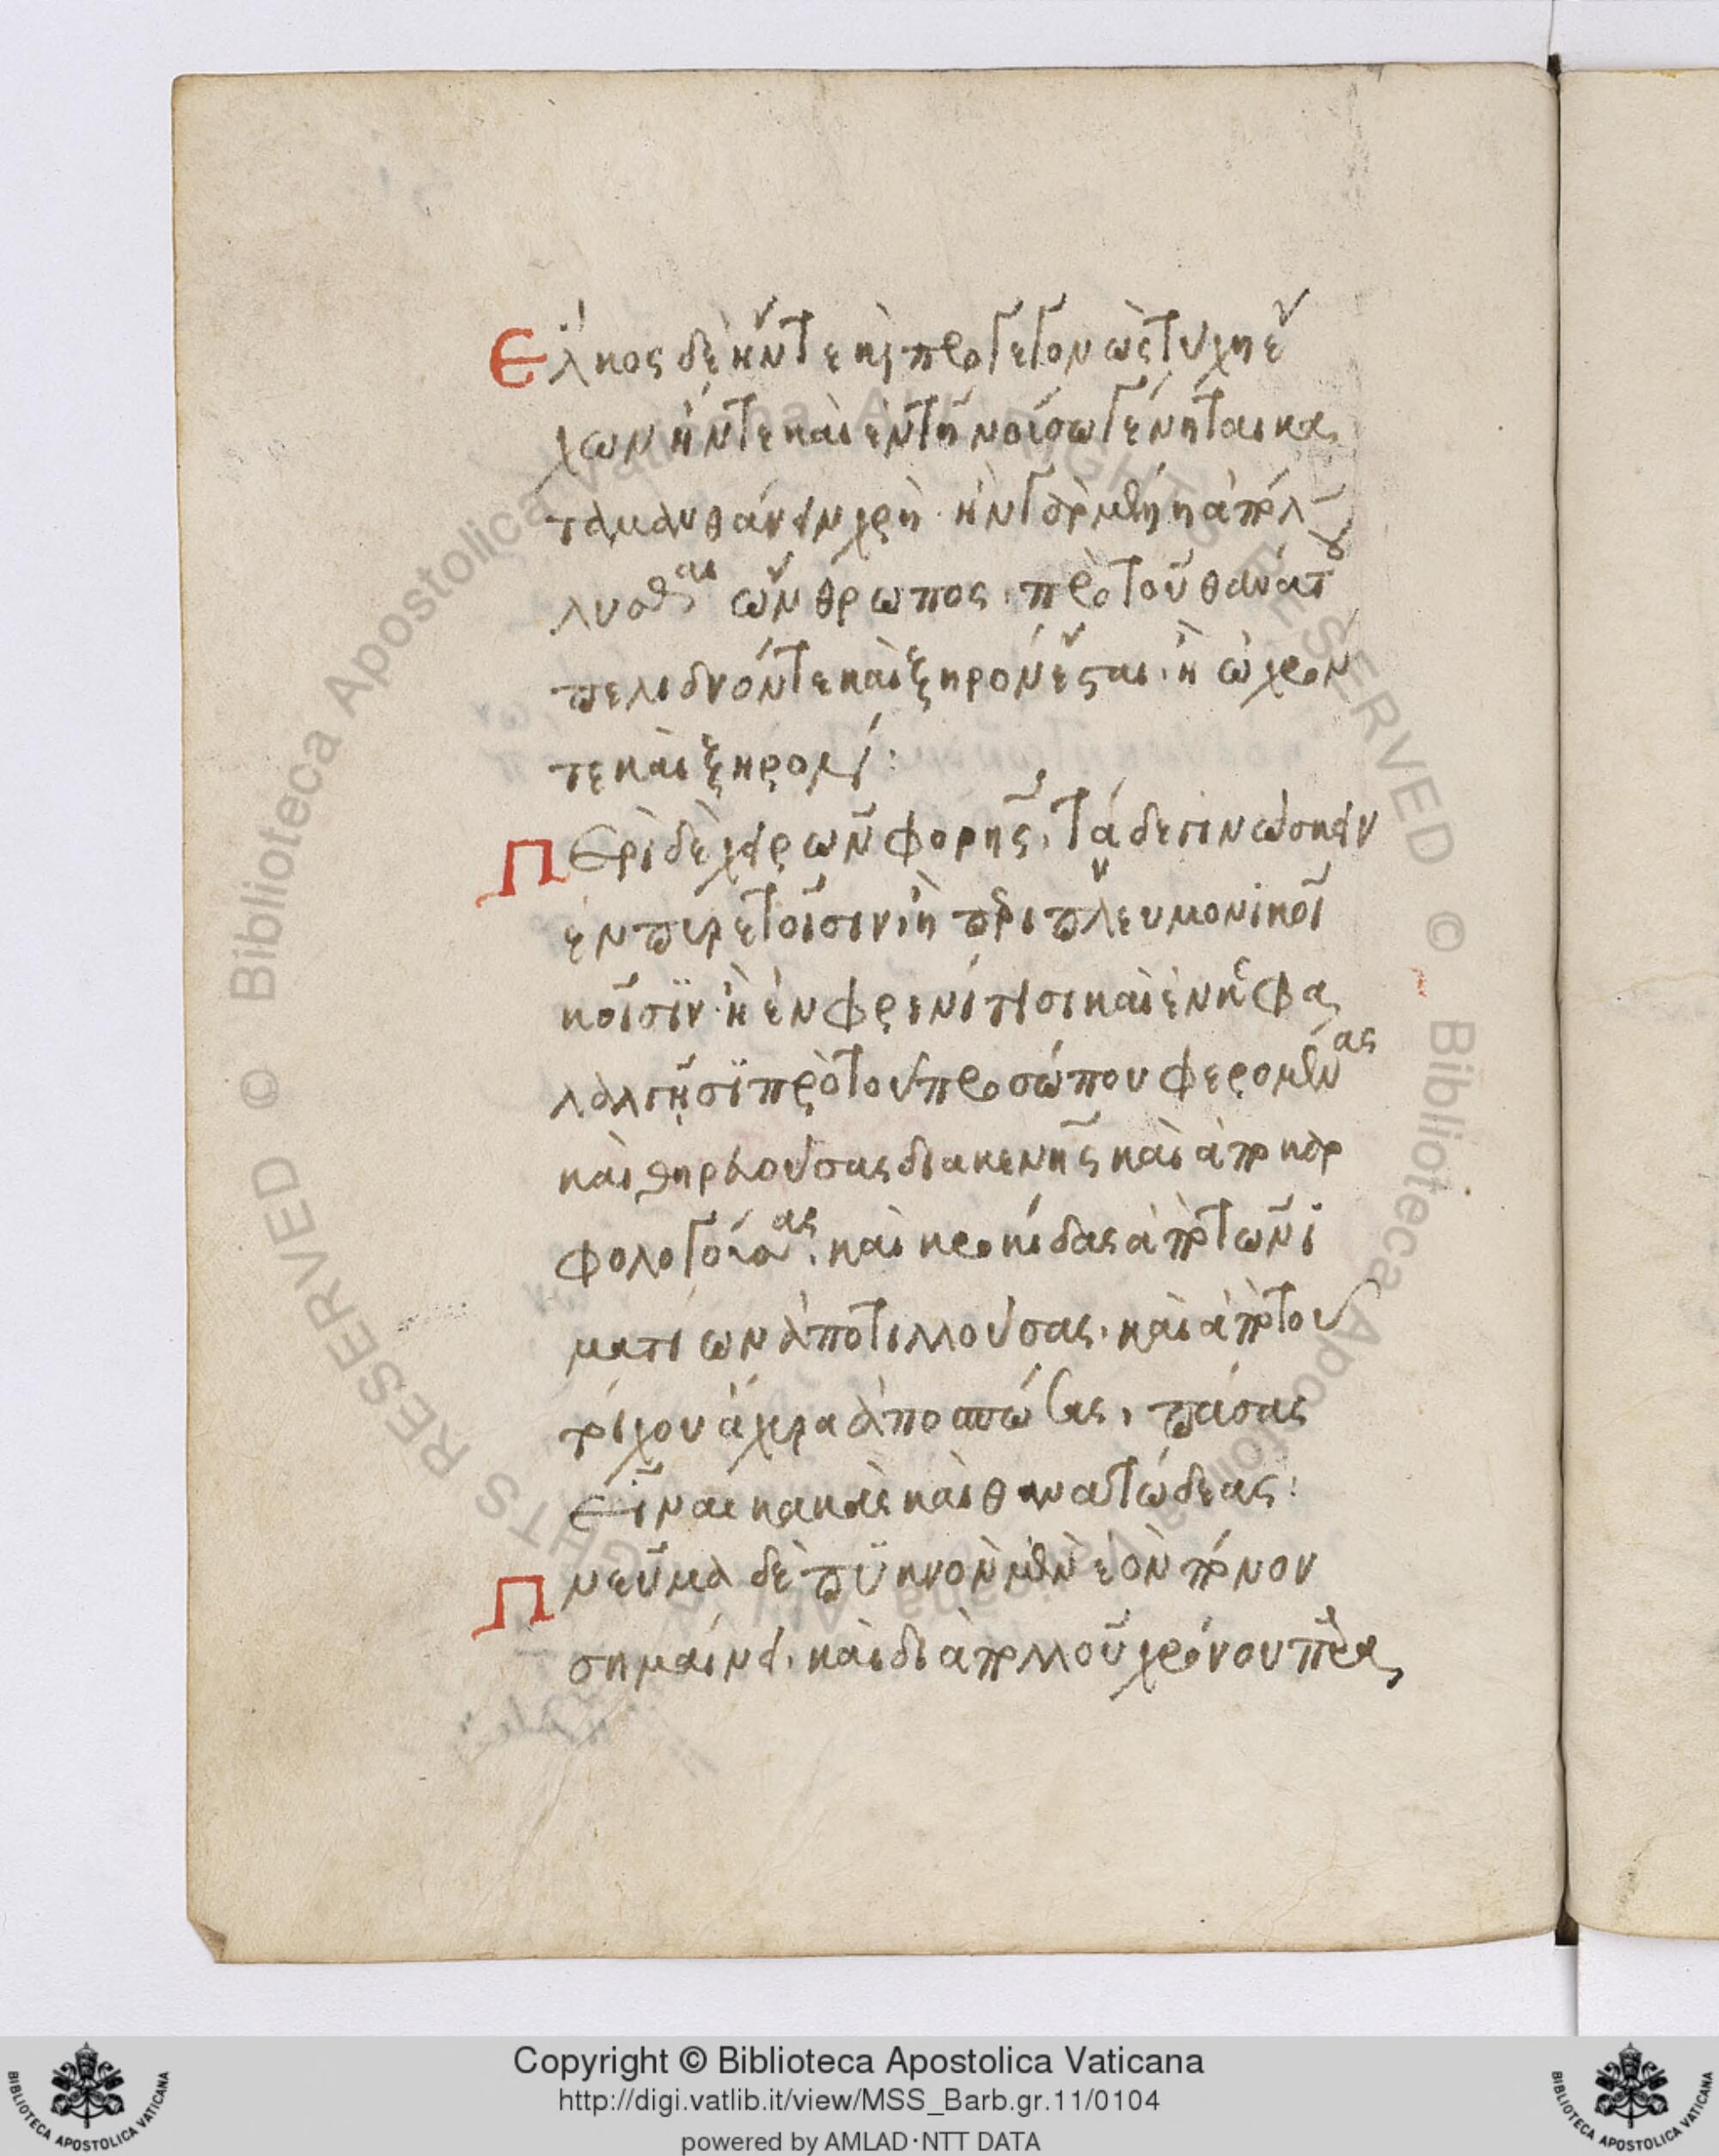 Ἕλκος δὲ ἤν τε καὶ προγεγονὼς τύχη ἔ
χων ἤν τε καὶ ἐν τῆ νούσω γένηται κα
ταμανθάνειν χρή· ἢν γὰρ μέλλη ἀπόλ
λυσθαι ὥνθρωπος· πρὸ τοῦ θανάτου
πελιδνόν τε καὶ ξηρὸν ἔσται· ἢ ὠχρόν
τε καὶ ξηρόν:
Περὶ δὲ χειρῶν φορῆς, τάδε γινώσκειν
ἐν πυρετοῖσιν, ἢ περιπλευμονικοῖ
κοῖσϊν· ἢ ἐν φρενίτισι καὶ ἐν κεφα
λαλγῆσϊ πρὸ τοῦ προσώπου φερομένας
καὶ θηρευούσας διακενῆς καὶ ἀποκαρ
φολογούσας· καὶ κροκίδας ἀπὸ τῶν ἱ
ματίων ἀποτιλλούσας· καὶ ἀπὸ τοῦ
τοίχου ἄχυρα ἀποσπώσας, πάσας
εἶναι κακὰς καὶ θανατώδεας:
Πνεῦμα δὲ πυκνὸν μὲν ἐὸν πόνον
σημαίνει· καὶ διὰ πολλοῦ χρόνου πέρα
Copyright © Biblioteca Apostolica Vaticana
http://digi.vatlib.it/view/MSS_Barb.gr.11/0104
powered by AMLAD·NTT DATA